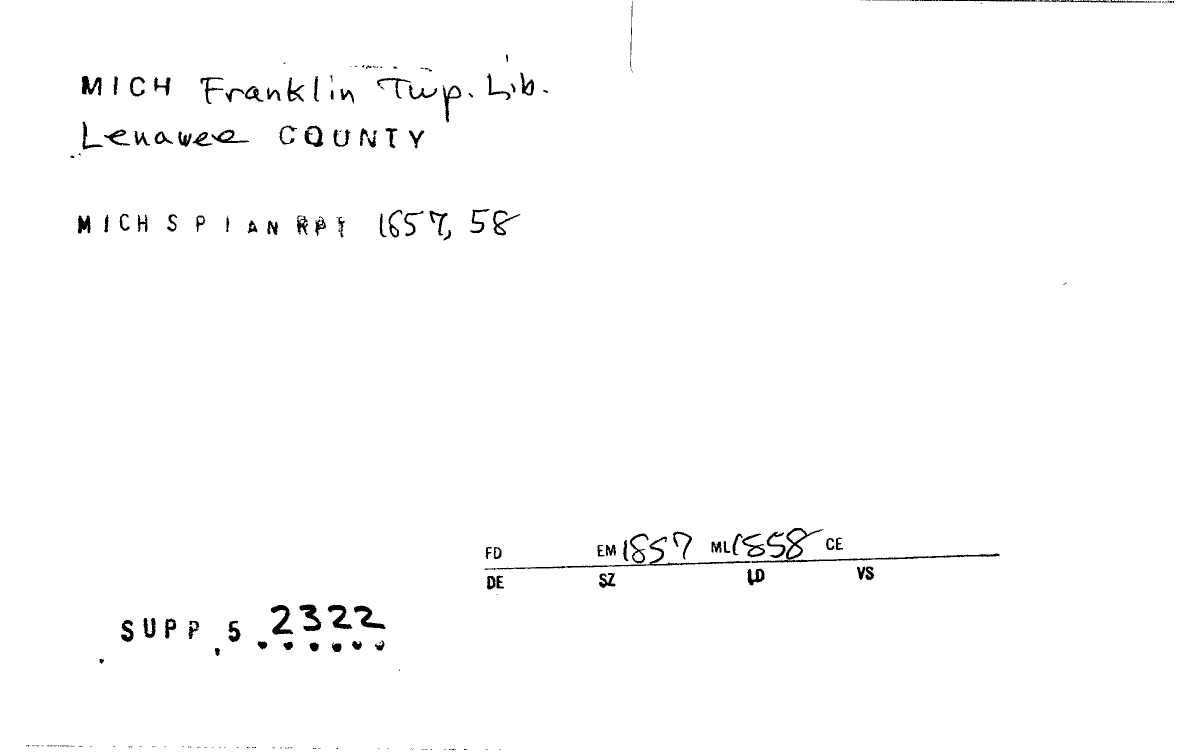 MICH Franklin Twp. Lib.
Lenawee COUNTY
MICH S P I AN RPT 1857, 58
FD EM 1857 ML 1858 CE
DE SZ LD VS
SUPP. 5 2322